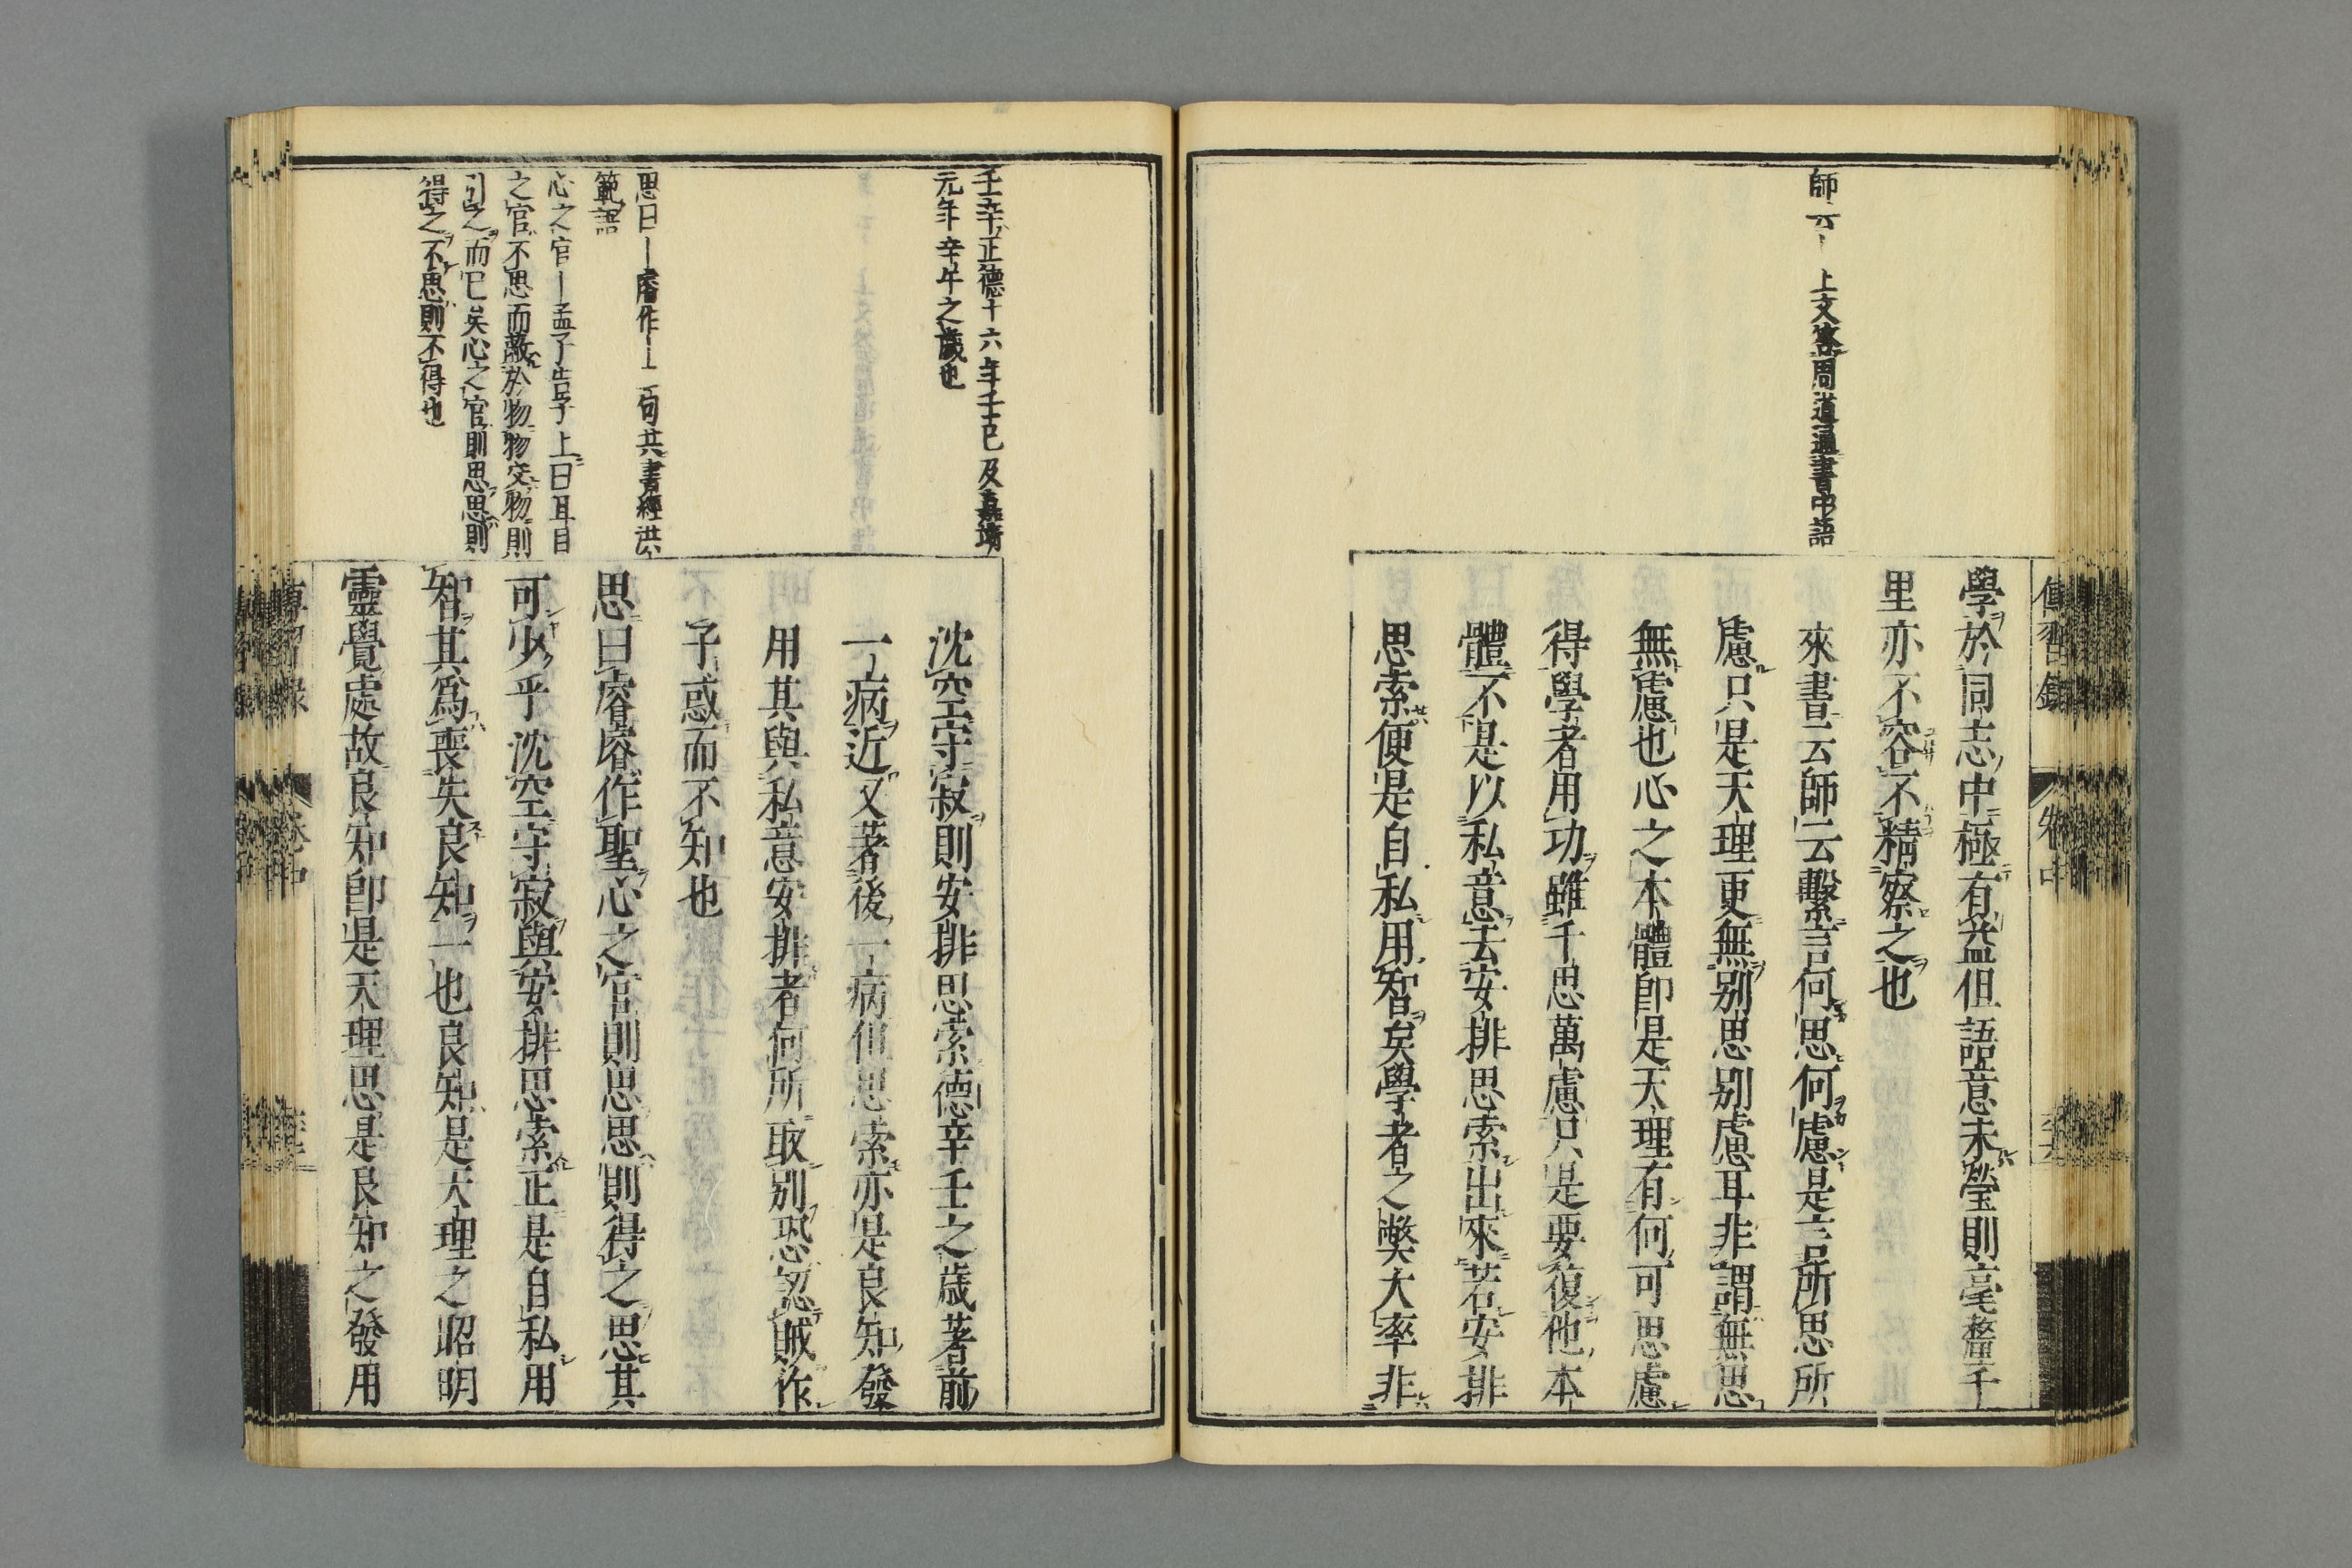 傳習錄
卷中
師云― 上文答周道通書中語
學於同志中極有益但語意未瑩則毫釐千
里亦不容不精察之也
來書云師云繫言何思何慮是言所思所
慮只是天理更無別思別慮耳非謂無思
無慮也心之本體卽是天理有何可思慮
得學者用功雖千思萬慮只是要復他本
體不是以私意去安排思索出來若安排
思索便是自私用智矣學者之獘大率非
壬辛正德十六年壬巳及嘉靖
元年辛午之歲也
思曰―睿作― 句共書經洪
範語
心之官―孟子告子上曰耳目
之官不思而蔽於物物交物則
引之而已矣心之官則思思則
得之不思則不得也
沈空守寂則安排思索德辛壬之歲著前
一病近又著後一病但思索亦是良知發
用其與私意安排者何所取別恐認賊作
子惑而不知也
思曰睿睿作聖心之官則思思則得之思其
可少乎沈空守寂與安排思索正是自私用
智其爲喪失良知一也良知是天理之昭明
靈覺處故良知卽是天理思是良知之發用
傳習錄
卷中